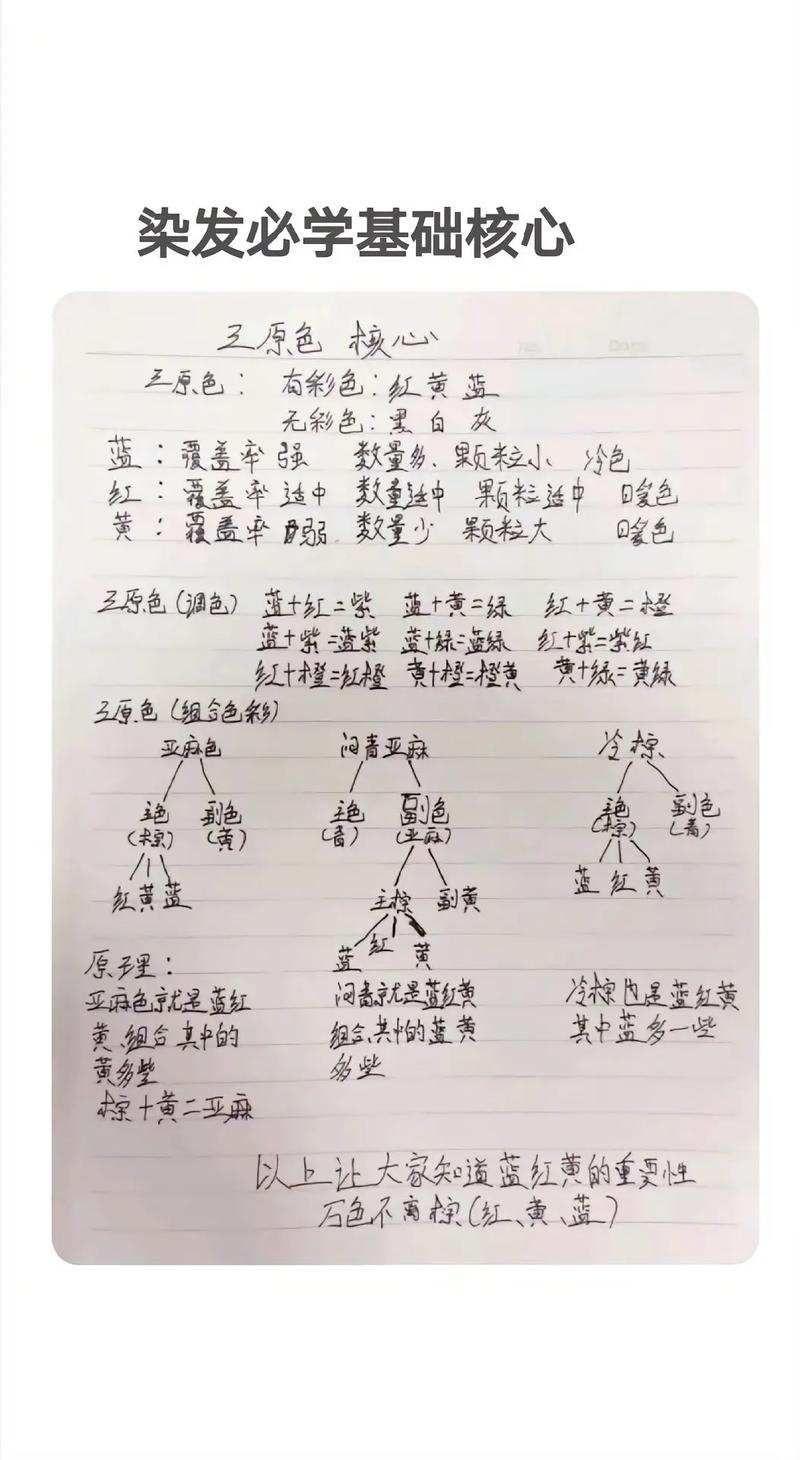 染发必学基础核心
三原色 核心
三原色： 有彩色：红 黄 蓝
无彩色：黑 白 灰
蓝：覆盖率 强 数量多、颗粒小 冷色
红：覆盖率 适中 数量适中 颗粒适中 暖色
黄：覆盖率 弱 数量少 颗粒大 暖色
三原色(调色) 蓝+红=紫 蓝+黄=绿 红+黄=橙
蓝+紫=蓝紫 蓝+绿=蓝绿 红+紫=紫红
红+橙=红橙 黄+橙=橙黄 黄+绿=黄绿
三原色(组合色彩)
亚麻色 闷青亚麻 冷棕
主色 副色 主色 副色 主色 副色
(棕) (黄) (青) (亚麻) (棕) (青)
红黄蓝 主棕 副黄 蓝 红 黄
蓝 红 黄
原理：
亚麻色就是蓝红 闷青就是蓝红黄 冷棕也是蓝红黄
黄、组合 其中的 组合、其中的蓝黄 其中蓝多一些
黄多些 多些
棕+黄=亚麻
以上让大家知道蓝红黄的重要性
万色不离棕(红、黄、蓝)